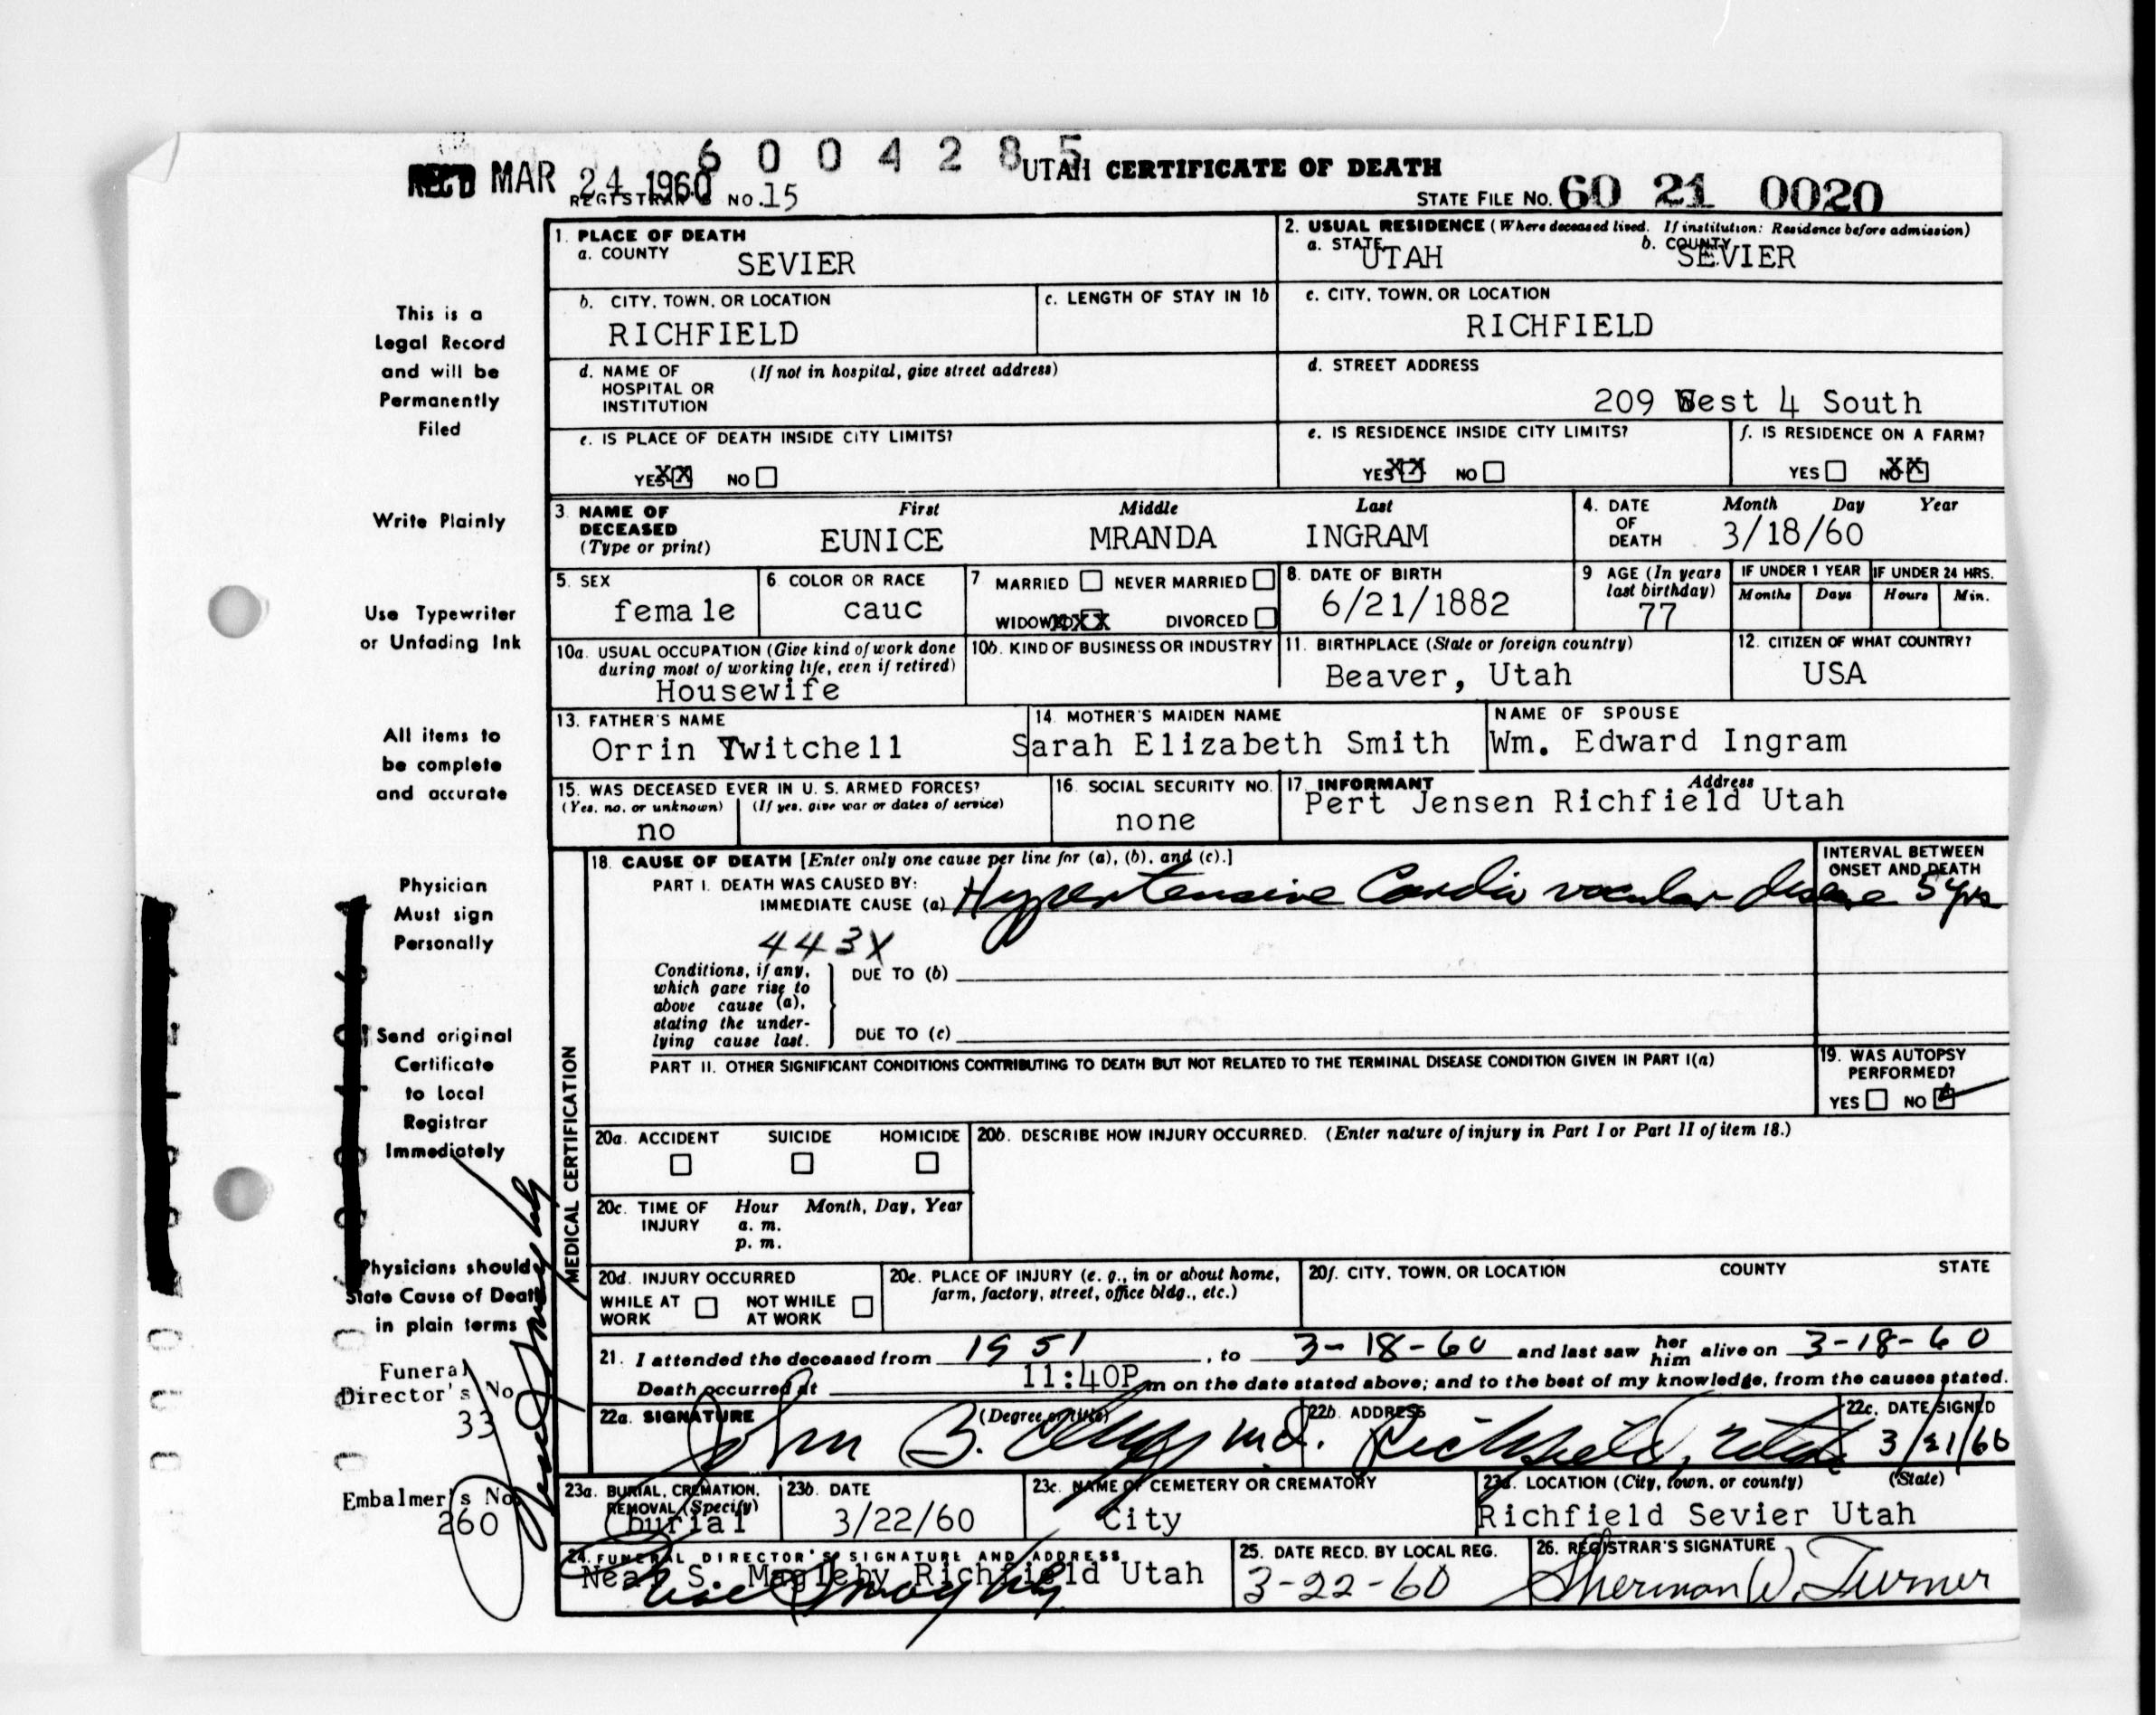 6004285
REC'D MAR 24 1960
REGISTRAR'S NO. 15
UTAH CERTIFICATE OF DEATH
STATE FILE NO. 60 21 0020
This is a
Legal Record
and will be
Permanently
Filed
Write Plainly
Use Typewriter
or Unfading Ink
All items to
be complete
and accurate
Physician
Must sign
Personally
Send original
Certificate
to Local
Registrar
Immediately
Physicians should
State Cause of Death
in plain terms
Funeral
Director's No
33
Embalmer's No
260
1. PLACE OF DEATH
a. COUNTY SEVIER
2. USUAL RESIDENCE (Where deceased lived. If institution: Residence before admission)
a. STATE UTAH b. COUNTY SEVIER
b. CITY, TOWN, OR LOCATION
RICHFIELD
c. LENGTH OF STAY IN 1b
c. CITY, TOWN, OR LOCATION
RICHFIELD
d. NAME OF (If not in hospital, give street address)
HOSPITAL OR
INSTITUTION
d. STREET ADDRESS
209 West 4 South
e. IS PLACE OF DEATH INSIDE CITY LIMITS?
YES XX NO
e. IS RESIDENCE INSIDE CITY LIMITS?
YES XX NO
f. IS RESIDENCE ON A FARM?
YES NO XX
3. NAME OF DECEASED (Type or print) First Middle Last
EUNICE MRANDA INGRAM
4. DATE OF DEATH Month Day Year
3/18/60
5. SEX
female
6. COLOR OR RACE
cauc
7 MARRIED NEVER MARRIED
WIDOWED XXX DIVORCED
8. DATE OF BIRTH
6/21/1882
9 AGE (In years last birthday)
77
IF UNDER 1 YEAR IF UNDER 24 HRS.
Months Days Hours Min.
10a. USUAL OCCUPATION (Give kind of work done
during most of working life, even if retired)
Housewife
10b. KIND OF BUSINESS OR INDUSTRY
11. BIRTHPLACE (State or foreign country)
Beaver, Utah
12. CITIZEN OF WHAT COUNTRY?
USA
13. FATHER'S NAME
Orrin Twitchell
14. MOTHER'S MAIDEN NAME
Sarah Elizabeth Smith
NAME OF SPOUSE
Wm. Edward Ingram
15. WAS DECEASED EVER IN U. S. ARMED FORCES?
(Yes, no, or unknown) (If yes, give war or dates of service)
no
16. SOCIAL SECURITY NO.
none
17. INFORMANT Address
Pert Jensen Richfield Utah
MEDICAL CERTIFICATION
18. CAUSE OF DEATH [Enter only one cause per line for (a), (b), and (c).]
INTERVAL BETWEEN
ONSET AND DEATH
PART I. DEATH WAS CAUSED BY:
IMMEDIATE CAUSE (a) Hypertensive Cardio vascular disease 5 yrs
443X
Conditions, if any,
which gave rise to
above cause (a),
stating the under-
lying cause last.
DUE TO (b)
DUE TO (c)
PART II. OTHER SIGNIFICANT CONDITIONS CONTRIBUTING TO DEATH BUT NOT RELATED TO THE TERMINAL DISEASE CONDITION GIVEN IN PART I(a)
19. WAS AUTOPSY
PERFORMED?
YES NO
20a. ACCIDENT SUICIDE HOMICIDE
20b. DESCRIBE HOW INJURY OCCURRED. (Enter nature of injury in Part I or Part II of item 18.)
20c. TIME OF INJURY Hour Month, Day, Year
a. m.
p. m.
20d. INJURY OCCURRED
WHILE AT WORK NOT WHILE AT WORK
20e. PLACE OF INJURY (e. g., in or about home,
farm, factory, street, office bldg., etc.)
20f. CITY, TOWN, OR LOCATION COUNTY STATE
21. I attended the deceased from 1951, to 3-18-60 and last saw her him alive on 3-18-60
Death occurred at 11:40P m on the date stated above; and to the best of my knowledge, from the causes stated.
22a. SIGNATURE (Degree or title)
M.D.
22b. ADDRESS
Richfield, Utah
22c. DATE SIGNED
3/21/60
23a. BURIAL, CREMATION,
REMOVAL (Specify)
burial
23b. DATE
3/22/60
23c. NAME OF CEMETERY OR CREMATORY
City
23d. LOCATION (City, town, or county) (State)
Richfield Sevier Utah
24. FUNERAL DIRECTOR'S SIGNATURE AND ADDRESS
Neal S. Magleby Richfield Utah
25. DATE RECD. BY LOCAL REG.
3-22-60
26. REGISTRAR'S SIGNATURE
Sherman W. Turner